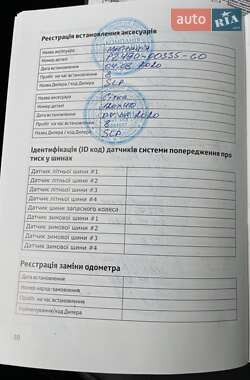 AUTO RIA
Реєстрація встановлення аксесуарів
Назва аксесуара
Номер деталі PZ490-00335-G0
Дата встановлення 04.08.2020
Пробіг на час встановлення 8
Назва Дилера / код Дилера
Назва аксесуара Сітка
Номер деталі
Дата встановлення 2020
Пробіг на час встановлення 8
Назва Дилера / код Дилера
Ідентифікація (ID код) датчиків системи попередження про
тиск у шинах
Датчик літньої шини #1
Датчик літньої шини #2
Датчик літньої шини #3
Датчик літньої шини #4
Датчик шини запасного колеса
Датчик зимової шини #1
Датчик зимової шини #2
Датчик зимової шини #3
Датчик зимової шини #4
Реєстрація заміни одометра
Дата встановлення
Номер наряд-замовлення
Пробіг на час встановлення
Найменування/код Дилера